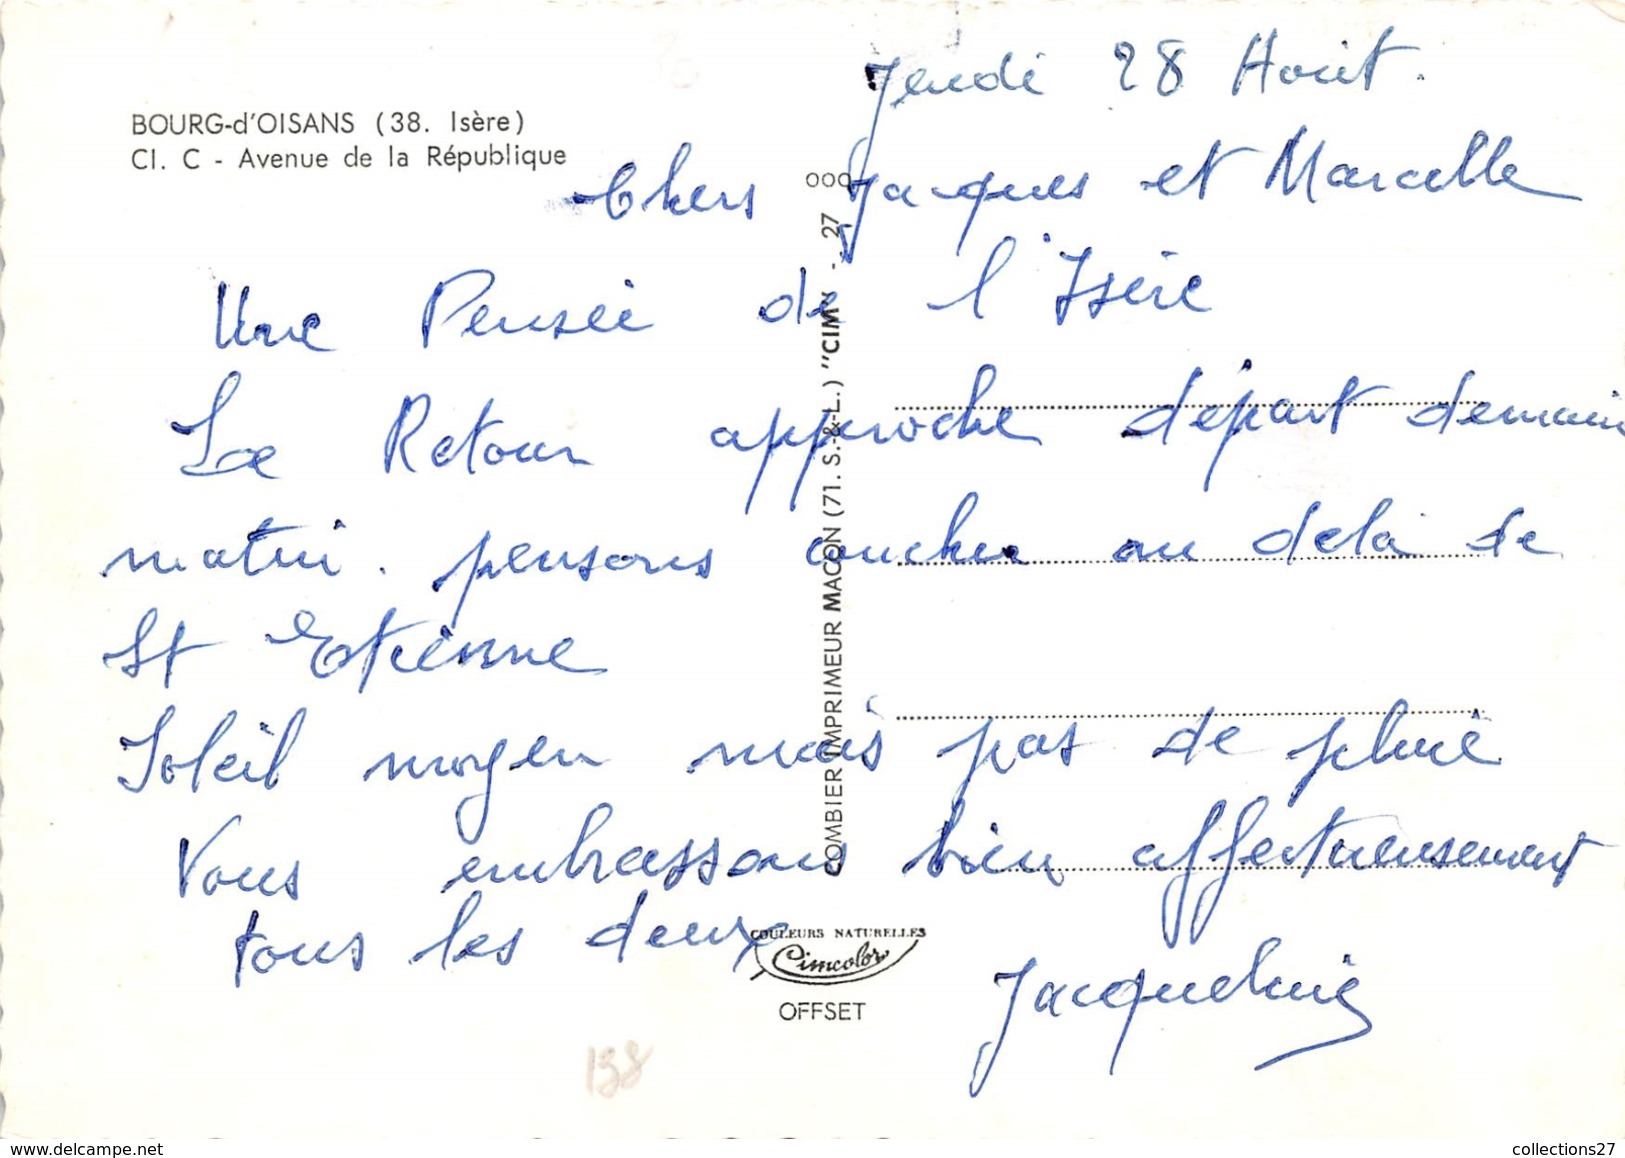 BOURG-d'OISANS (38. Isère)
Cl. C - Avenue de la République
Jeudi 28 Août.
Chers Jacques et Marcelle
Une Pensée de l'Isère
Le Retour approche départ demain
matin. pensons coucher au delà de
St Etienne
Soleil moyen mais pas de pluie
Vous embrassons bien affectueusement
tous les deux
Jacqueline
COMBIER IMPRIMEUR MACON (71. S.-&-L.) "CIM"
27
COULEURS NATURELLES
Cimcolor
OFFSET
138
collections27